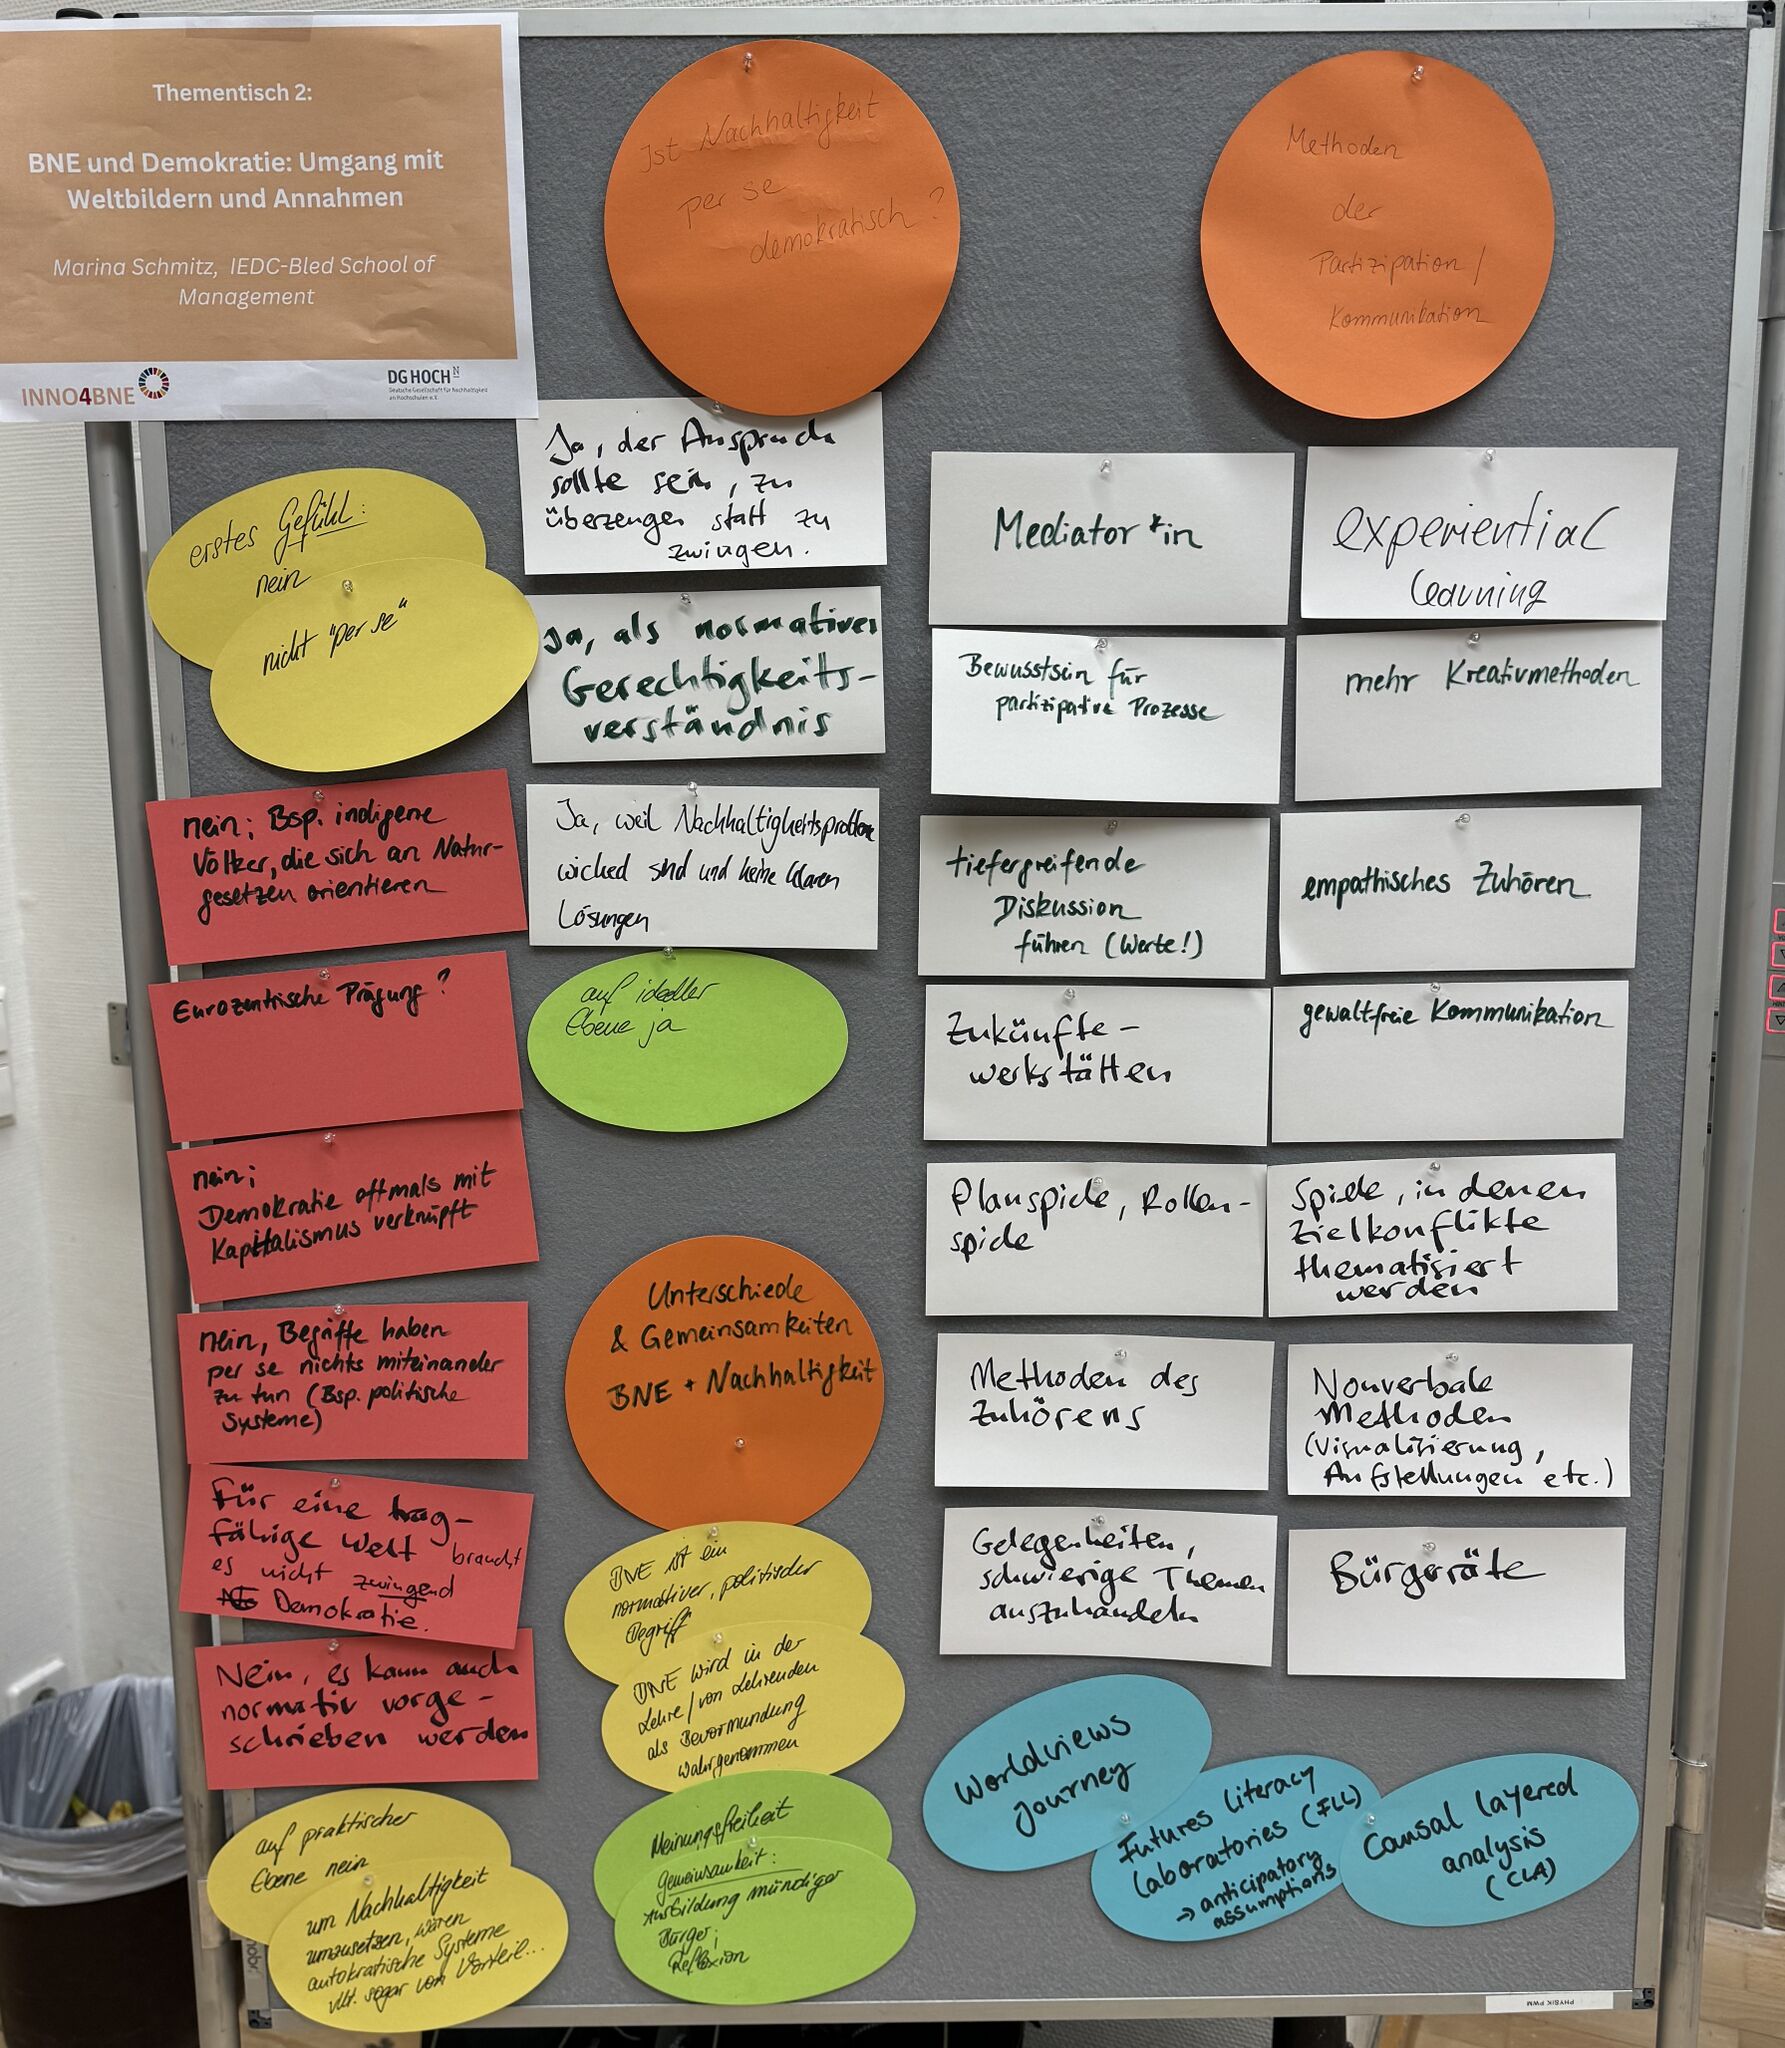 Thementisch 2:
BNE und Demokratie: Umgang mit
Weltbildern und Annahmen
Marina Schmitz, IEDC-Bled School of
Management
INNO4BNE
DG HOCH N
Deutsche Gesellschaft für Nachhaltigkeit
an Hochschulen e.V.
Ist Nachhaltigkeit
per se
demokratisch?
erstes Gefühl:
nein
nicht "per se"
nein; Bsp. indigene
Völker, die sich an Natur-
gesetzen orientieren
Eurozentrische Prägung?
nein;
Demokratie oftmals mit
Kapitalismus verknüpft
nein, Begriffe haben
per se nichts miteinander
zu tun (Bsp. politische
Systeme)
Für eine trag-
fähige Welt braucht
es nicht zwingend
Demokratie.
Nein, es kann auch
normativ vorge-
schrieben werden
auf praktischer
Ebene nein
um Nachhaltigkeit
umzusetzen, wären
autokratische Systeme
vllt. sogar von Vorteil...
Ja, der Anspruch
sollte sein, zu
überzeugen statt zu
zwingen.
Ja, als normatives
Gerechtigkeits-
verständnis
Ja, weil Nachhaltigkeitsprobleme
wicked sind und keine klaren
Lösungen
auf ideeller
Ebene ja
Unterschiede
& Gemeinsamkeiten
BNE + Nachhaltigkeit
BNE ist ein
normativer, politischer
Begriff
BNE wird in der
Lehre/von Lehrenden
als Bevormundung
wahrgenommen
Meinungsfreiheit
Gemeinsamkeit:
Ausbildung mündiger
Bürger;
Reflexion
Methoden
der
Partizipation /
Kommunikation
Mediator*in
Bewusstsein für
partizipative Prozesse
tiefergreifende
Diskussion
führen (Werte!)
Zukünfte-
werkstätten
Planspiele, Rollen-
spiele
Methoden des
Zuhörens
Gelegenheiten,
schwierige Themen
auszuhandeln
experiential
learning
mehr Kreativmethoden
empathisches Zuhören
gewaltfreie Kommunikation
Spiele, in denen
Zielkonflikte
thematisiert
werden
Nonverbale
Methoden
(Visualisierung,
Aufstellungen etc.)
Bürgeräte
Worldviews
journey
Futures Literacy
Laboratories (FLL)
→ anticipatory
assumptions
Causal layered
analysis
(CLA)
PHYSIK PWM